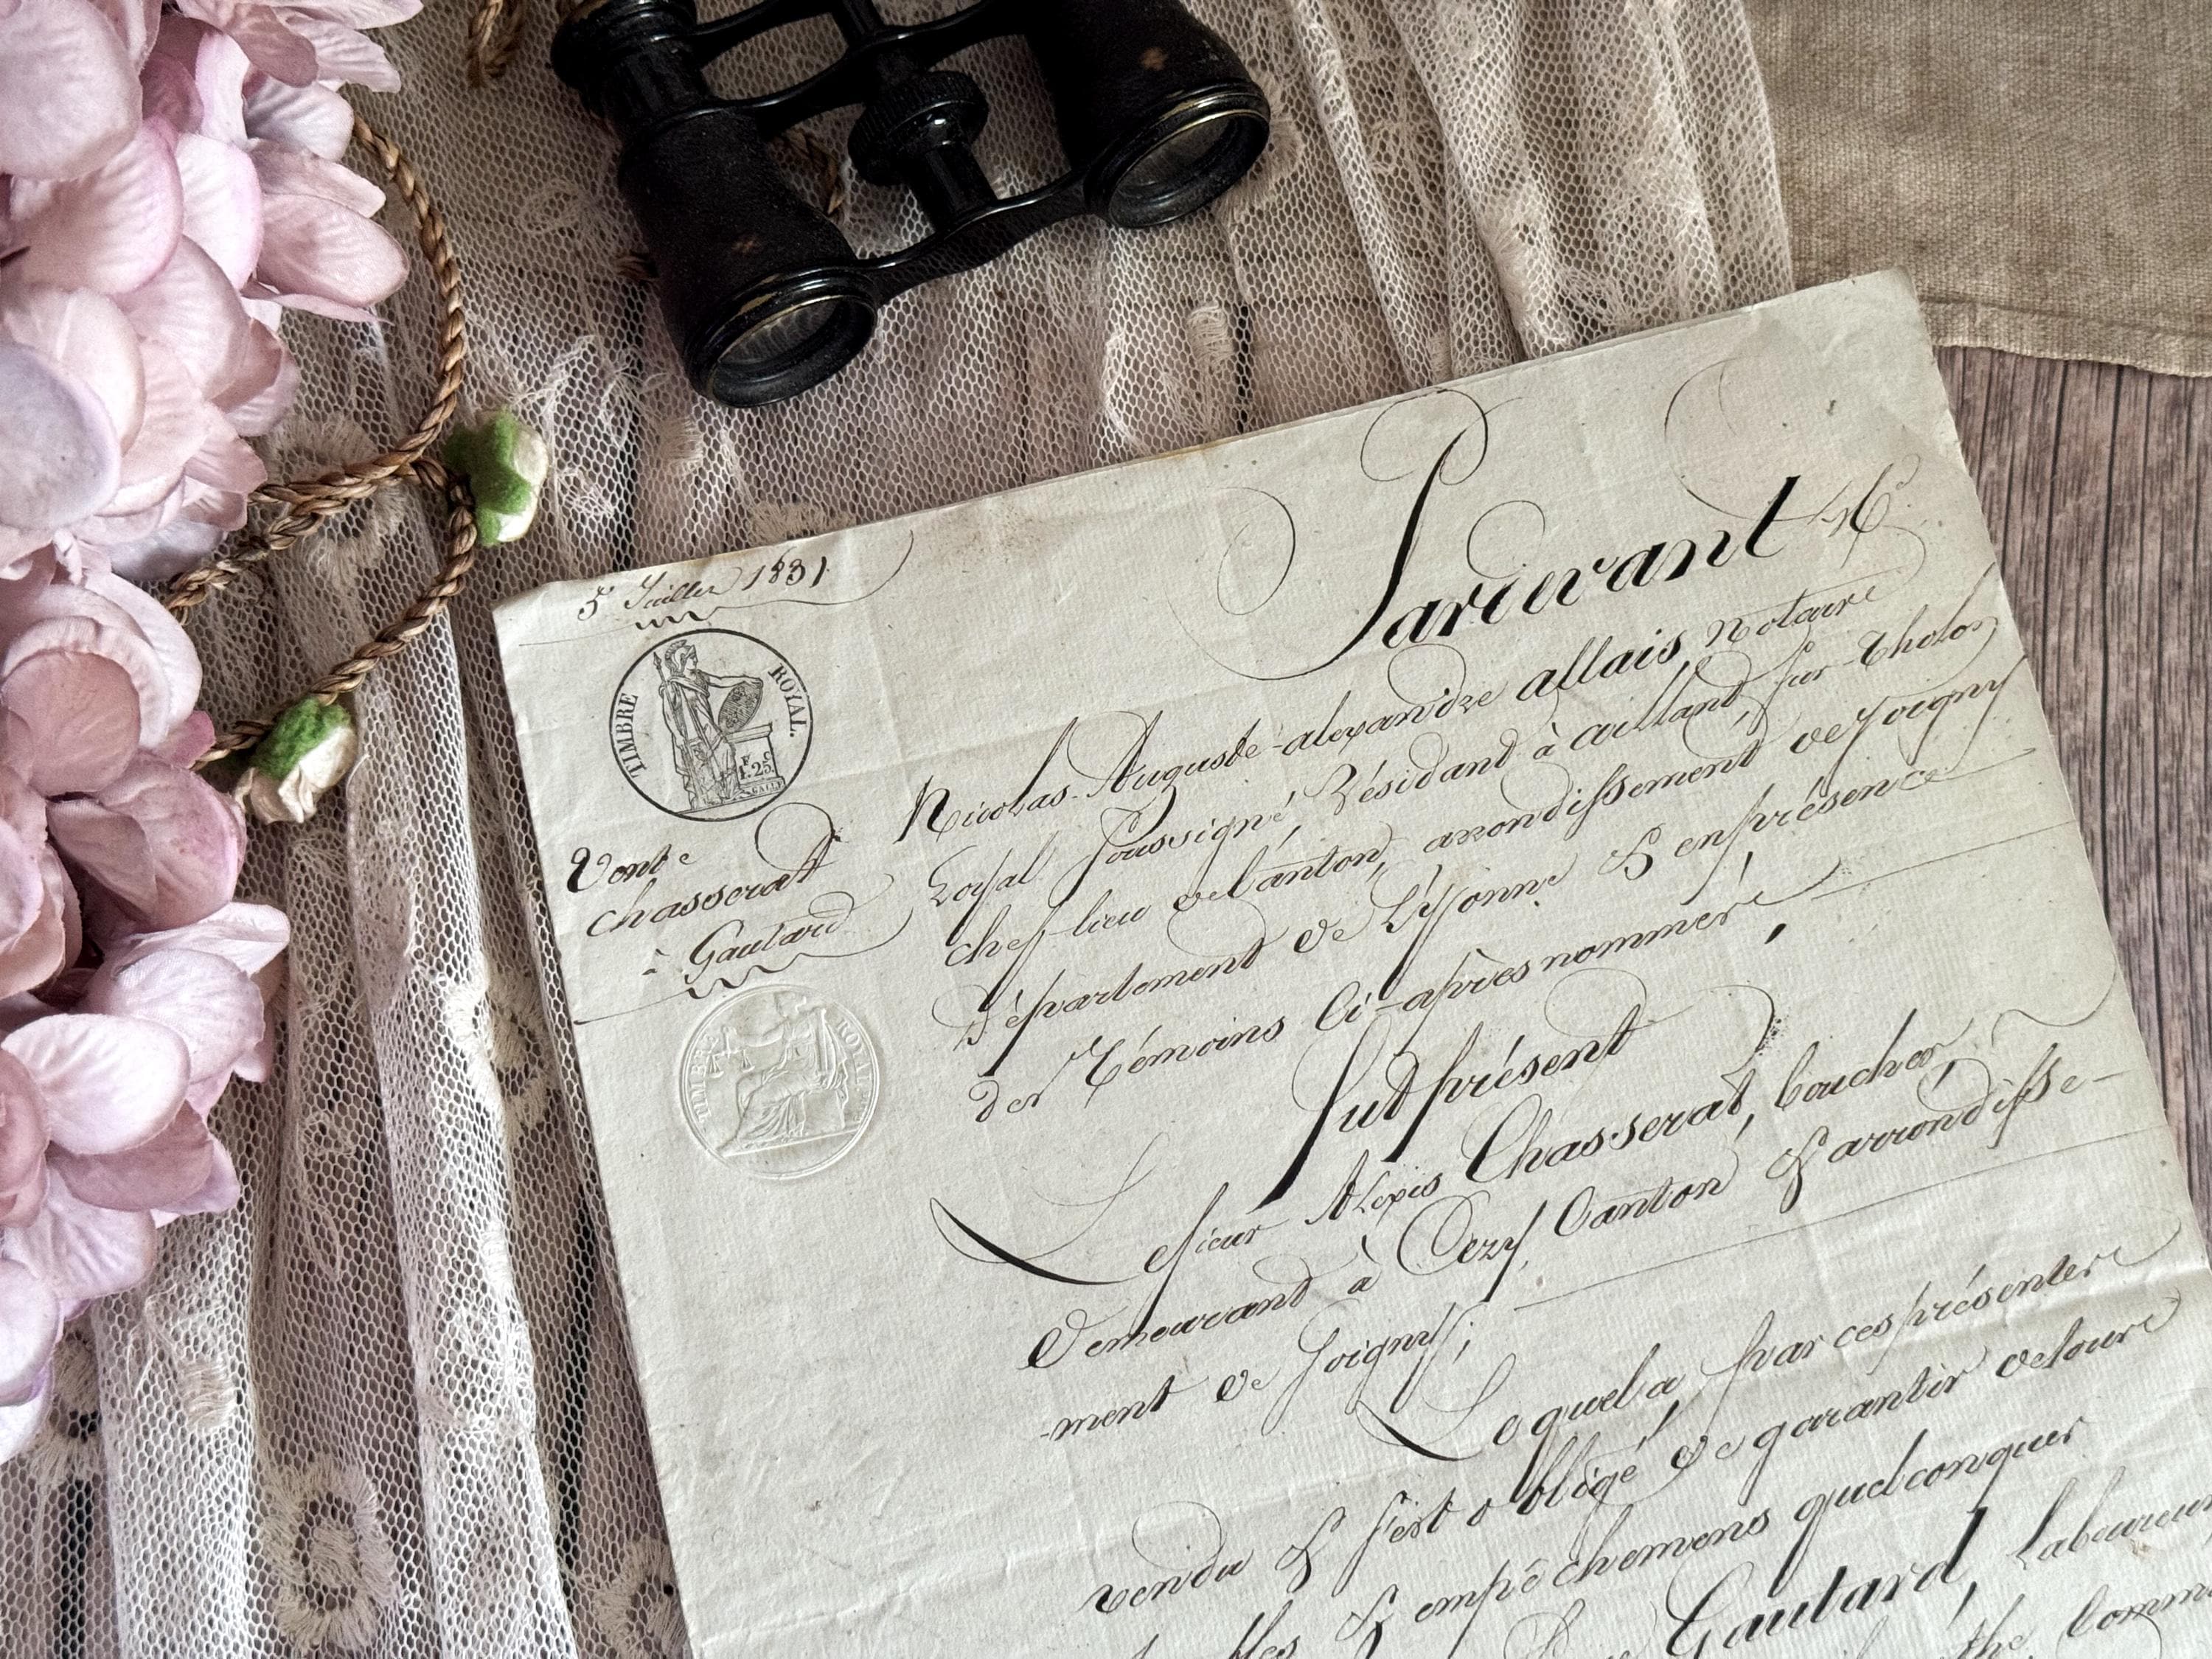 5 Juillet 1831
TIMBRE ROYAL.
F. C.
1.25.
Vente
chasserat
à Gautard
TIMBRE ROYAL
Pardevant Me
Nicolas-Auguste-alexandre allais Notaire
Royal Soussigné, Résidant à aillant, sur-Tholon
chef-lieu de Canton, arrondissement de Joigny
Département de L'Yonne & en présence
des Témoins Ci-après nommés,
fut présent
Le sieur Alexis Chasserat, boucher,
Demeurant à Cézy, Canton & arrondisse-
-ment de Joigny;
Lequel a, par ces présentes
vendu & s'est obligé de garantir de tous
& empéchemens quelconques
Gautard, Laboureur